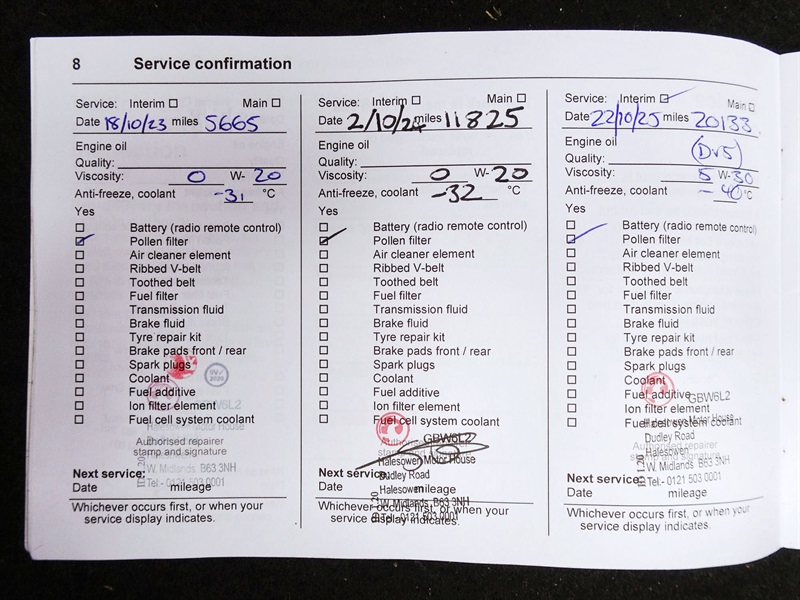 8 Service confirmation
Service: Interim Main
Date 18/10/23 miles 5665
Engine oil
Quality:
Viscosity: 0 W- 20
Anti-freeze, coolant -31 °C
Yes
Battery (radio remote control)
Pollen filter
Air cleaner element
Ribbed V-belt
Toothed belt
Fuel filter
Transmission fluid
Brake fluid
Tyre repair kit
Brake pads front / rear
Spark plugs
Coolant
Fuel additive
Ion filter element
Fuel cell system coolant
Authorised repairer
stamp and signature
GBW6L2
Halesowen Motor House
Halesowen
W. Midlands B63 3NH
Tel:- 0121 503 0001
Next service:
Date mileage
Whichever occurs first, or when your
service display indicates.
Service: Interim Main
Date 2/10/24 miles 11825
Engine oil
Quality:
Viscosity: 0 W- 20
Anti-freeze, coolant -32 °C
Yes
Battery (radio remote control)
Pollen filter
Air cleaner element
Ribbed V-belt
Toothed belt
Fuel filter
Transmission fluid
Brake fluid
Tyre repair kit
Brake pads front / rear
Spark plugs
Coolant
Fuel additive
Ion filter element
Fuel cell system coolant
GBW6L2
Halesowen Motor House
Dudley Road
Halesowen
W. Midlands B63 3NH
Tel:- 0121 503 0001
Next service:
Date mileage
Whichever occurs first, or when your
service display indicates.
Service: Interim Main
Date 22/10/25 miles 20133
Engine oil
Quality: (Dv5)
Viscosity: 5 W- 30
Anti-freeze, coolant -40 °C
Yes
Battery (radio remote control)
Pollen filter
Air cleaner element
Ribbed V-belt
Toothed belt
Fuel filter
Transmission fluid
Brake fluid
Tyre repair kit
Brake pads front / rear
Spark plugs
Coolant
Fuel additive
Ion filter element
Fuel cell system coolant
GBW6L2
Halesowen Motor House
Dudley Road
Halesowen
W. Midlands B63 3NH
Tel:- 0121 503 0001
Next service:
Date mileage
Whichever occurs first, or when your
service display indicates.